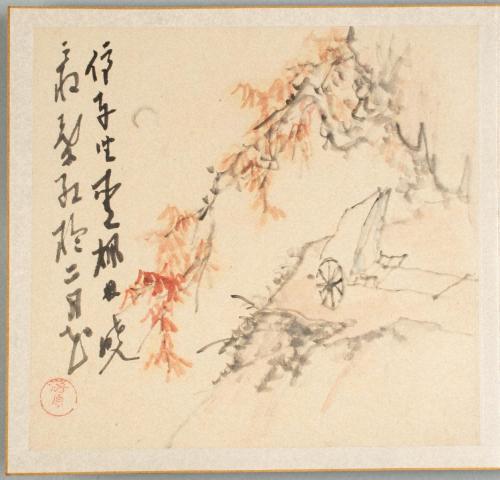 停車坐愛楓林晚
霜葉紅於二月花